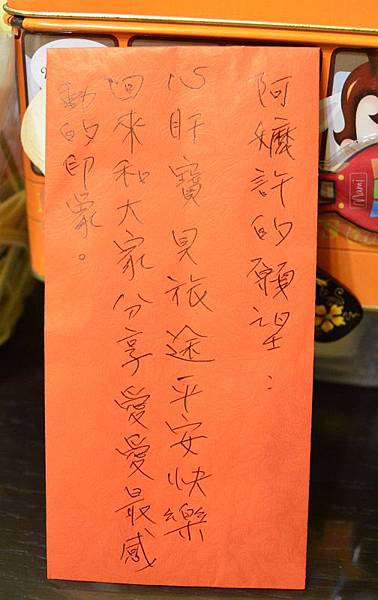 阿嬤許的願望：
心肝寶貝旅途平安快樂
回來和大家分享愛愛最感
動的印象。